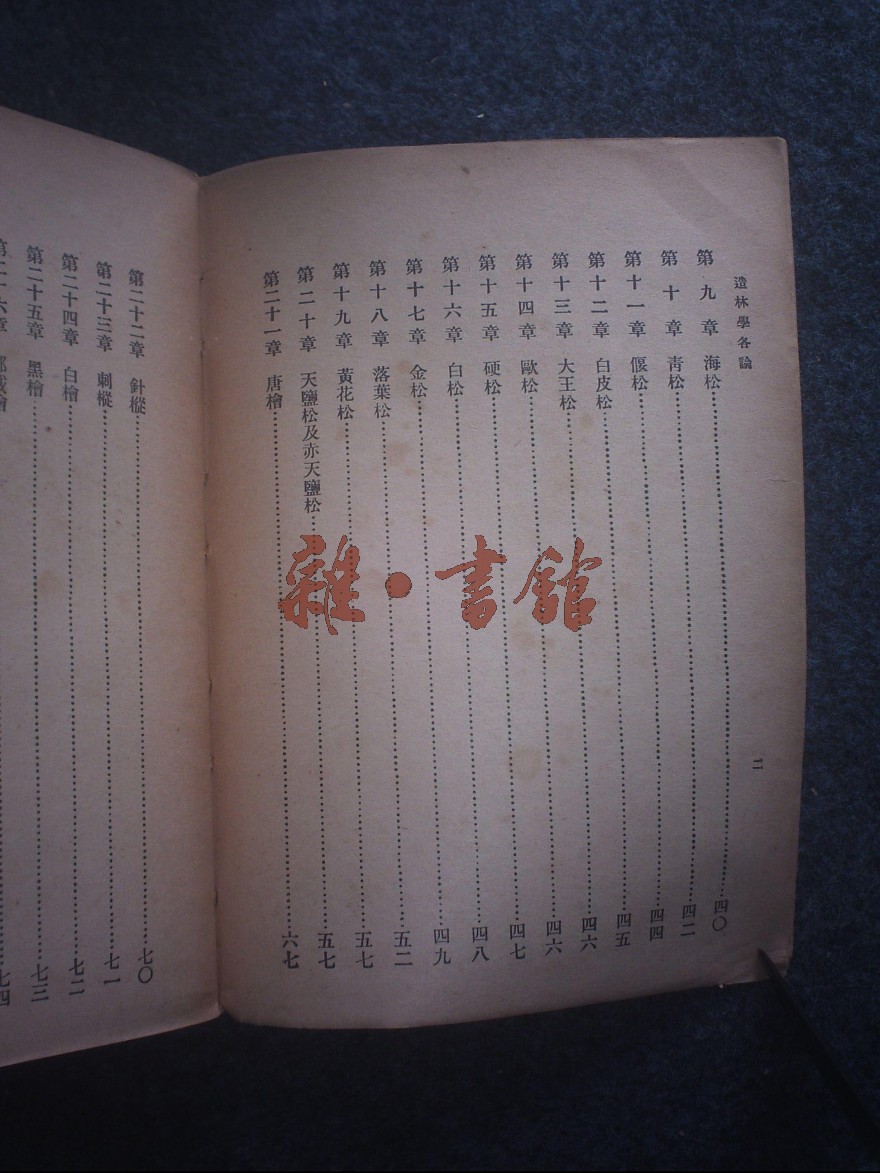 造林學各論
二
第九章 海松……四〇
第十章 靑松……四二
第十一章 偃松……四四
第十二章 白皮松……四五
第十三章 大王松……四六
第十四章 歐松……四六
第十五章 硬松……四七
第十六章 白松……四八
第十七章 金松……四九
第十八章 落葉松……五二
第十九章 黃花松……五七
第二十章 天鹽松及赤天鹽松……五七
第二十一章 唐檜……六七
第二十二章 針樅……七〇
第二十三章 刺樅……七一
第二十四章 白檜……七二
第二十五章 黑檜……七三
第二十六章 檜……七四
雜·書館